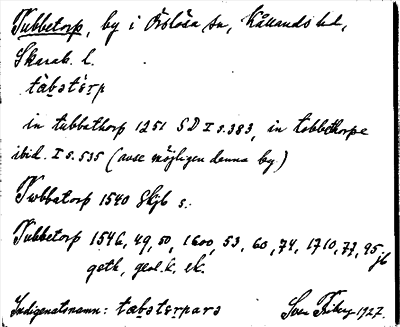 Tubbetorp, by i Örslösa sn, Kållands hd,
Skarab. l.
tàbətàrp
in tubbathorp 1251 SD I s. 383, in tobbthorpe
ibid. I s. 535 (avse möjligen denna by.)
Twbbatorp 1540 Skjb s.
Tubbetorp 1546, 49, 50, 1600, 53, 60, 74, 1710, 77, 95 jb
geth, geol. k, ek.
Indigenatsnamn: tabətərpara Sven Friberg 1927.